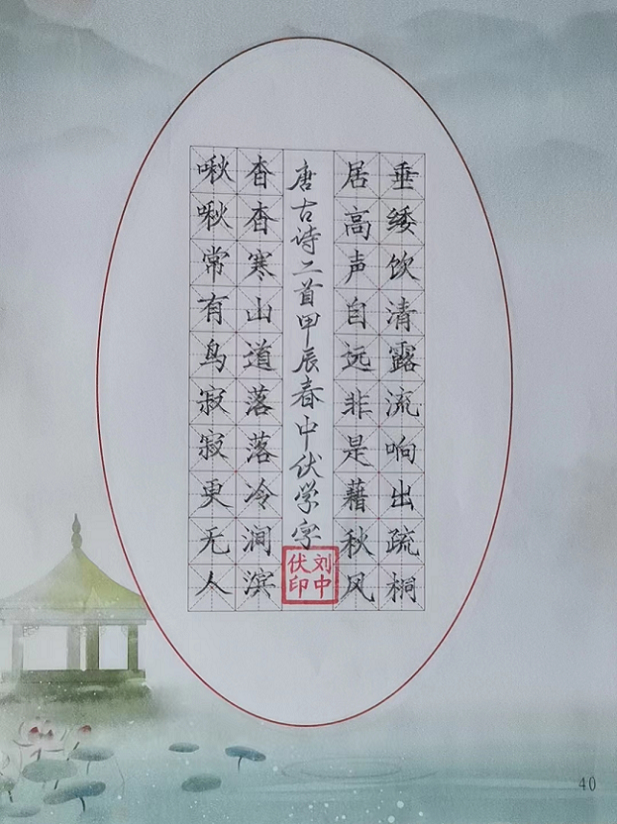 垂緌饮清露流响出疏桐
居高声自远非是藉秋风
唐古诗二首甲辰春中伏学字
刘中伏印
杳杳寒山道落落冷涧滨
啾啾常有鸟寂寂更无人
40